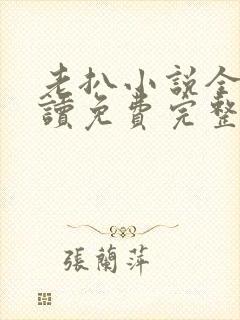 老扒小説全
讀免費完整
張蘭萍